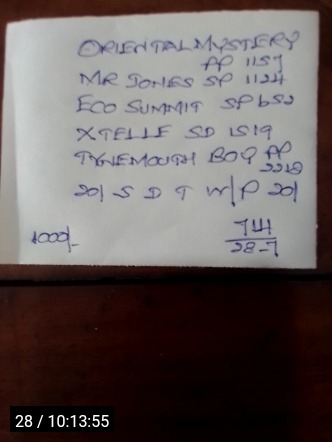 ORIENTAL MYSTERY
PP 1157
MR JONES SP 1124
ECO SUMMIT SP 652
XTELLE SD 1519
TYNEMOUTH BOQ PP
2218
20/ S D T W/P 20/
1000/-
714
28-7
28 / 10:13:55